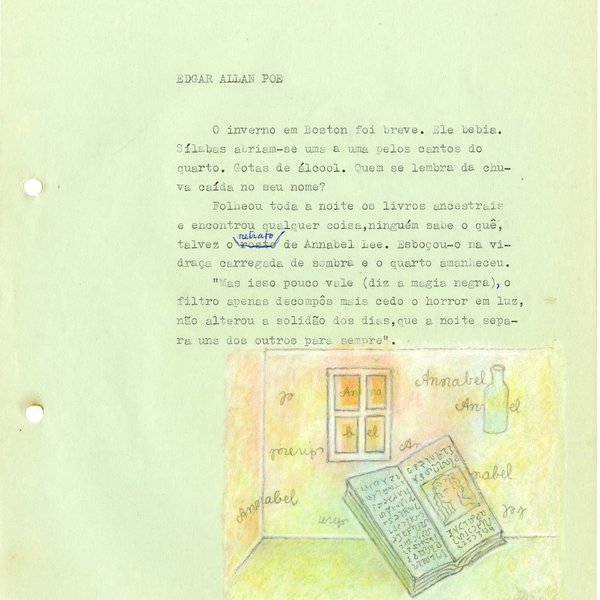 EDGAR ALLAN POE
O inverno em Boston foi breve. Ele bebia.
Sílabas abriam-se uma a uma pelos cantos do
quarto. Gotas de álcool. Quem se lembra da chu-
va caída no seu nome?
Folheou toda a noite os livros ancestrais
e encontrou qualquer coisa,ninguém sabe o quê,
retrato
talvez o rosto de Annabel Lee. Esboçou-o na vi-
draça carregada de sombra e o quarto amanheceu.
"Mas isso pouco vale (diz a magia negra), o
filtro apenas decompôs mais cedo o horror em luz,
não alterou a solidão dos dias,que a noite sepa-
ra uns dos outros para sempre".
Annabel
An el
An
nabel
Annabel